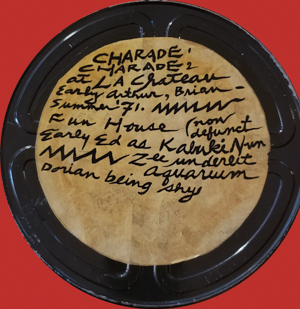 CHARADE 1
CHARADE 2
at LA Chateau
Early Arthur, Brian -
Summer '71.
Fun House (now defunct
Early Ed as Kabuki Nun
Zee underlit
aquarium
Dorian being shye